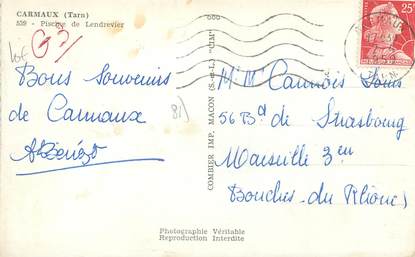 CARMAUX (Tarn)
539 - Piscine de Lendrevier
Bons Souvenirs
de Carmaux
COMBIER IMP. MACON (S.-et-L.) "CIM"
25F
Mr Mme Cannois Louis
56 Bd de Strasbourg
Marseille 3em
Bouches-du-Rhône
Photographie Véritable
Reproduction Interdite